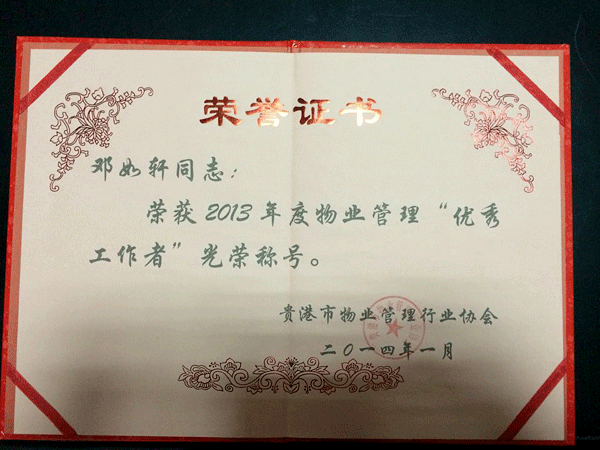 荣誉证书
邓如轩同志：
荣获2013年度物业管理“优秀
工作者”光荣称号。
贵港市物业管理行业协会
二〇一四年一月